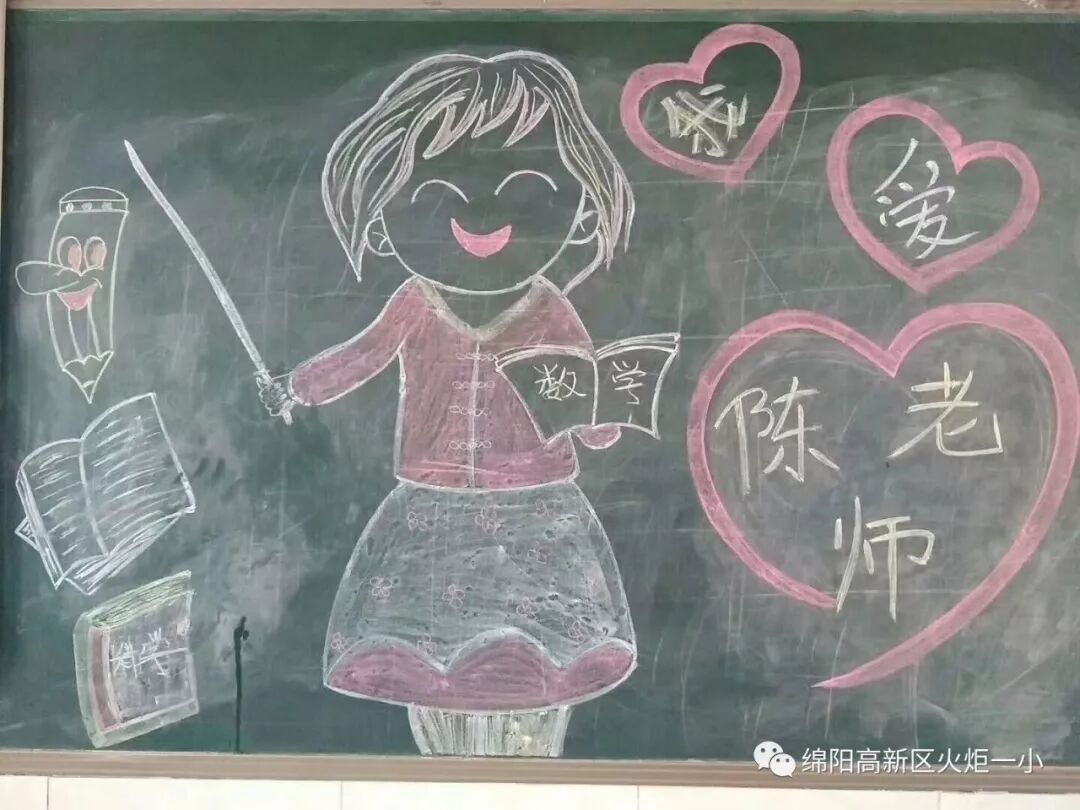 爱
数学
陈老
师
科学
绵阳高新区火炬一小